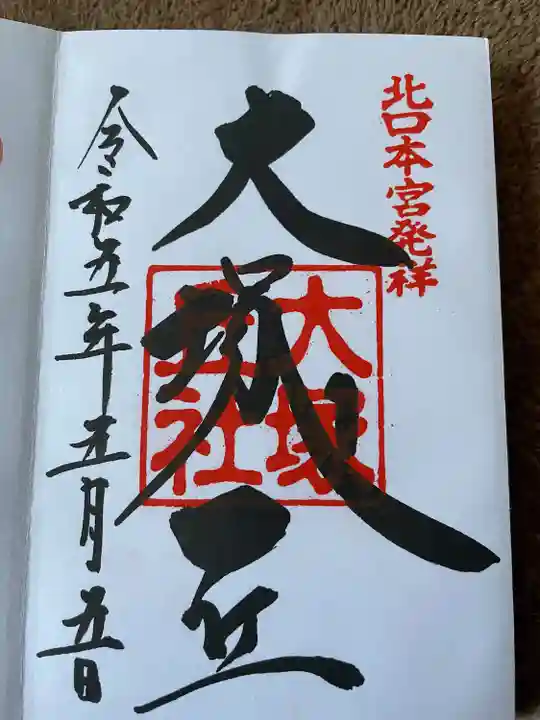 北口本宮発祥
大塚丘
大塚丘社
令和五年五月五日